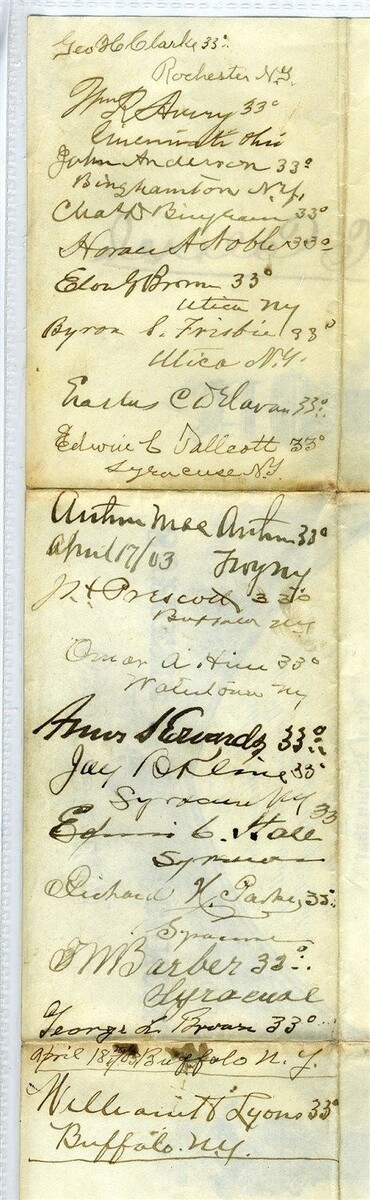 Geo H Clarke 33°
Rochester N.Y.
Wm R Avery 33°
Cincinnati Ohio
John Anderson 33°
Binghamton N.Y.
Chas D Bingham 33°
Horace A Noble 33°
Elon G Brown 33°
Utica NY
Byron S. Frisbie 33°
Utica N.Y.
Erastus C Delavan 33°
Edwin C Tallcott 33°
Syracuse N.Y.
Arthur MacArthur 33°
April 17/03 Troy NY
Prescott 33°
Buffalo NY
Omar A. Hine 33°
Watertown NY
Edwards 33°
Jay B Kline 33°
Syracuse NY 33
Edwin C. Hall
Syracuse
Richard H. Parker 33°
Syracuse
Barber 33°
Syracuse
George L. Brown 33°
April 18 /03 Buffalo N.Y.
William H Lyons 33°
Buffalo. N.Y.